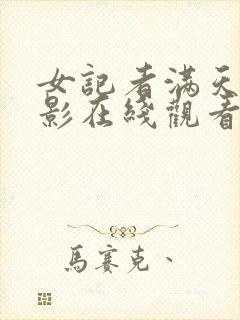 女記者滿天
影在綫觀看
馬賽克、